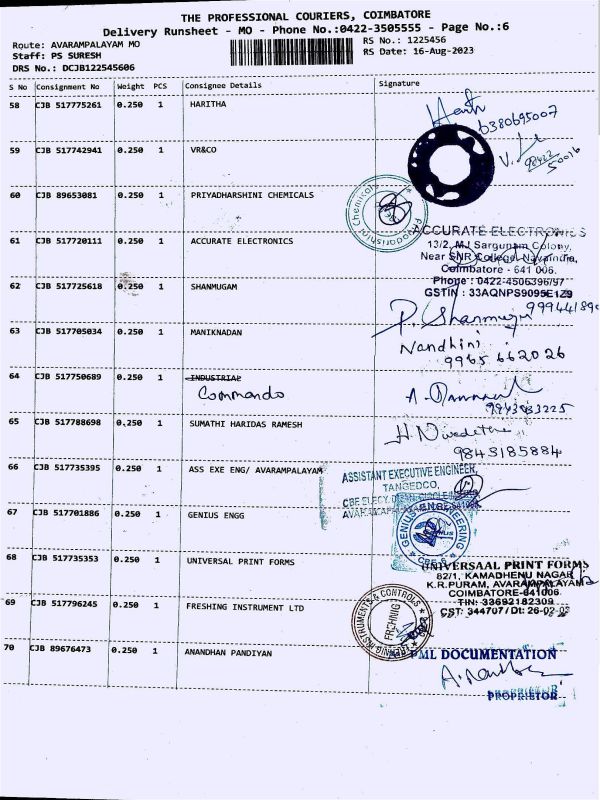 THE PROFESSIONAL COURIERS, COIMBATORE
Delivery Runsheet - MO - Phone No.:0422-3505555 - Page No.:6
Route: AVARAMPALAYAM MO
RS No.: 1225456
Staff: PS SURESH
RS Date: 16-Aug-2023
DRS No.: DCJB122545606
S No Consignment No Weight PCS Consignee Details Signature
58 CJB 517775261 0.250 1 HARITHA
6380695007
59 CJB 517742941 0.250 1 VR&CO
60 CJB 89653081 0.250 1 PRIYADHARSHINI CHEMICALS
61 CJB 517720111 0.250 1 ACCURATE ELECTRONICS
ACCURATE ELECTRONICS
13/2, MJ Sargunam Colony,
Near SNR College, Navaindia,
Coimbatore - 641 006.
Phone : 0422-4506396/97
GSTIN : 33AQNPS9095E1Z9
62 CJB 517725618 0.250 1 SHANMUGAM
P. Shanmugam
63 CJB 517705034 0.250 1 MANIKNADAN
Nandhini
9965 662026
64 CJB 517750689 0.250 1 INDUSTRIAL
Commando
65 CJB 517788698 0.250 1 SUMATHI HARIDAS RAMESH
H. Nivedetha
9843185884
66 CJB 517735395 0.250 1 ASS EXE ENG/ AVARAMPALAYAM
ASSISTANT EXECUTIVE ENGINEER,
TANGEDCO,
67 CJB 517701886 0.250 1 GENIUS ENGG
GENIUS ENGINEERING
CBE-6
68 CJB 517735353 0.250 1 UNIVERSAL PRINT FORMS
UNIVERSAAL PRINT FORMS
82/1, KAMADHENU NAGAR
K.R.PURAM, AVARAMPALAYAM
COIMBATORE-641006.
TIN: 33692182309
CST: 344707/Dt: 26-02-03
69 CJB 517796245 0.250 1 FRESHING INSTRUMENT LTD
INSTRUMENTS & CONTROLS
70 CJB 89676473 0.250 1 ANANDHAN PANDIYAN
PML DOCUMENTATION
PROPRIETOR